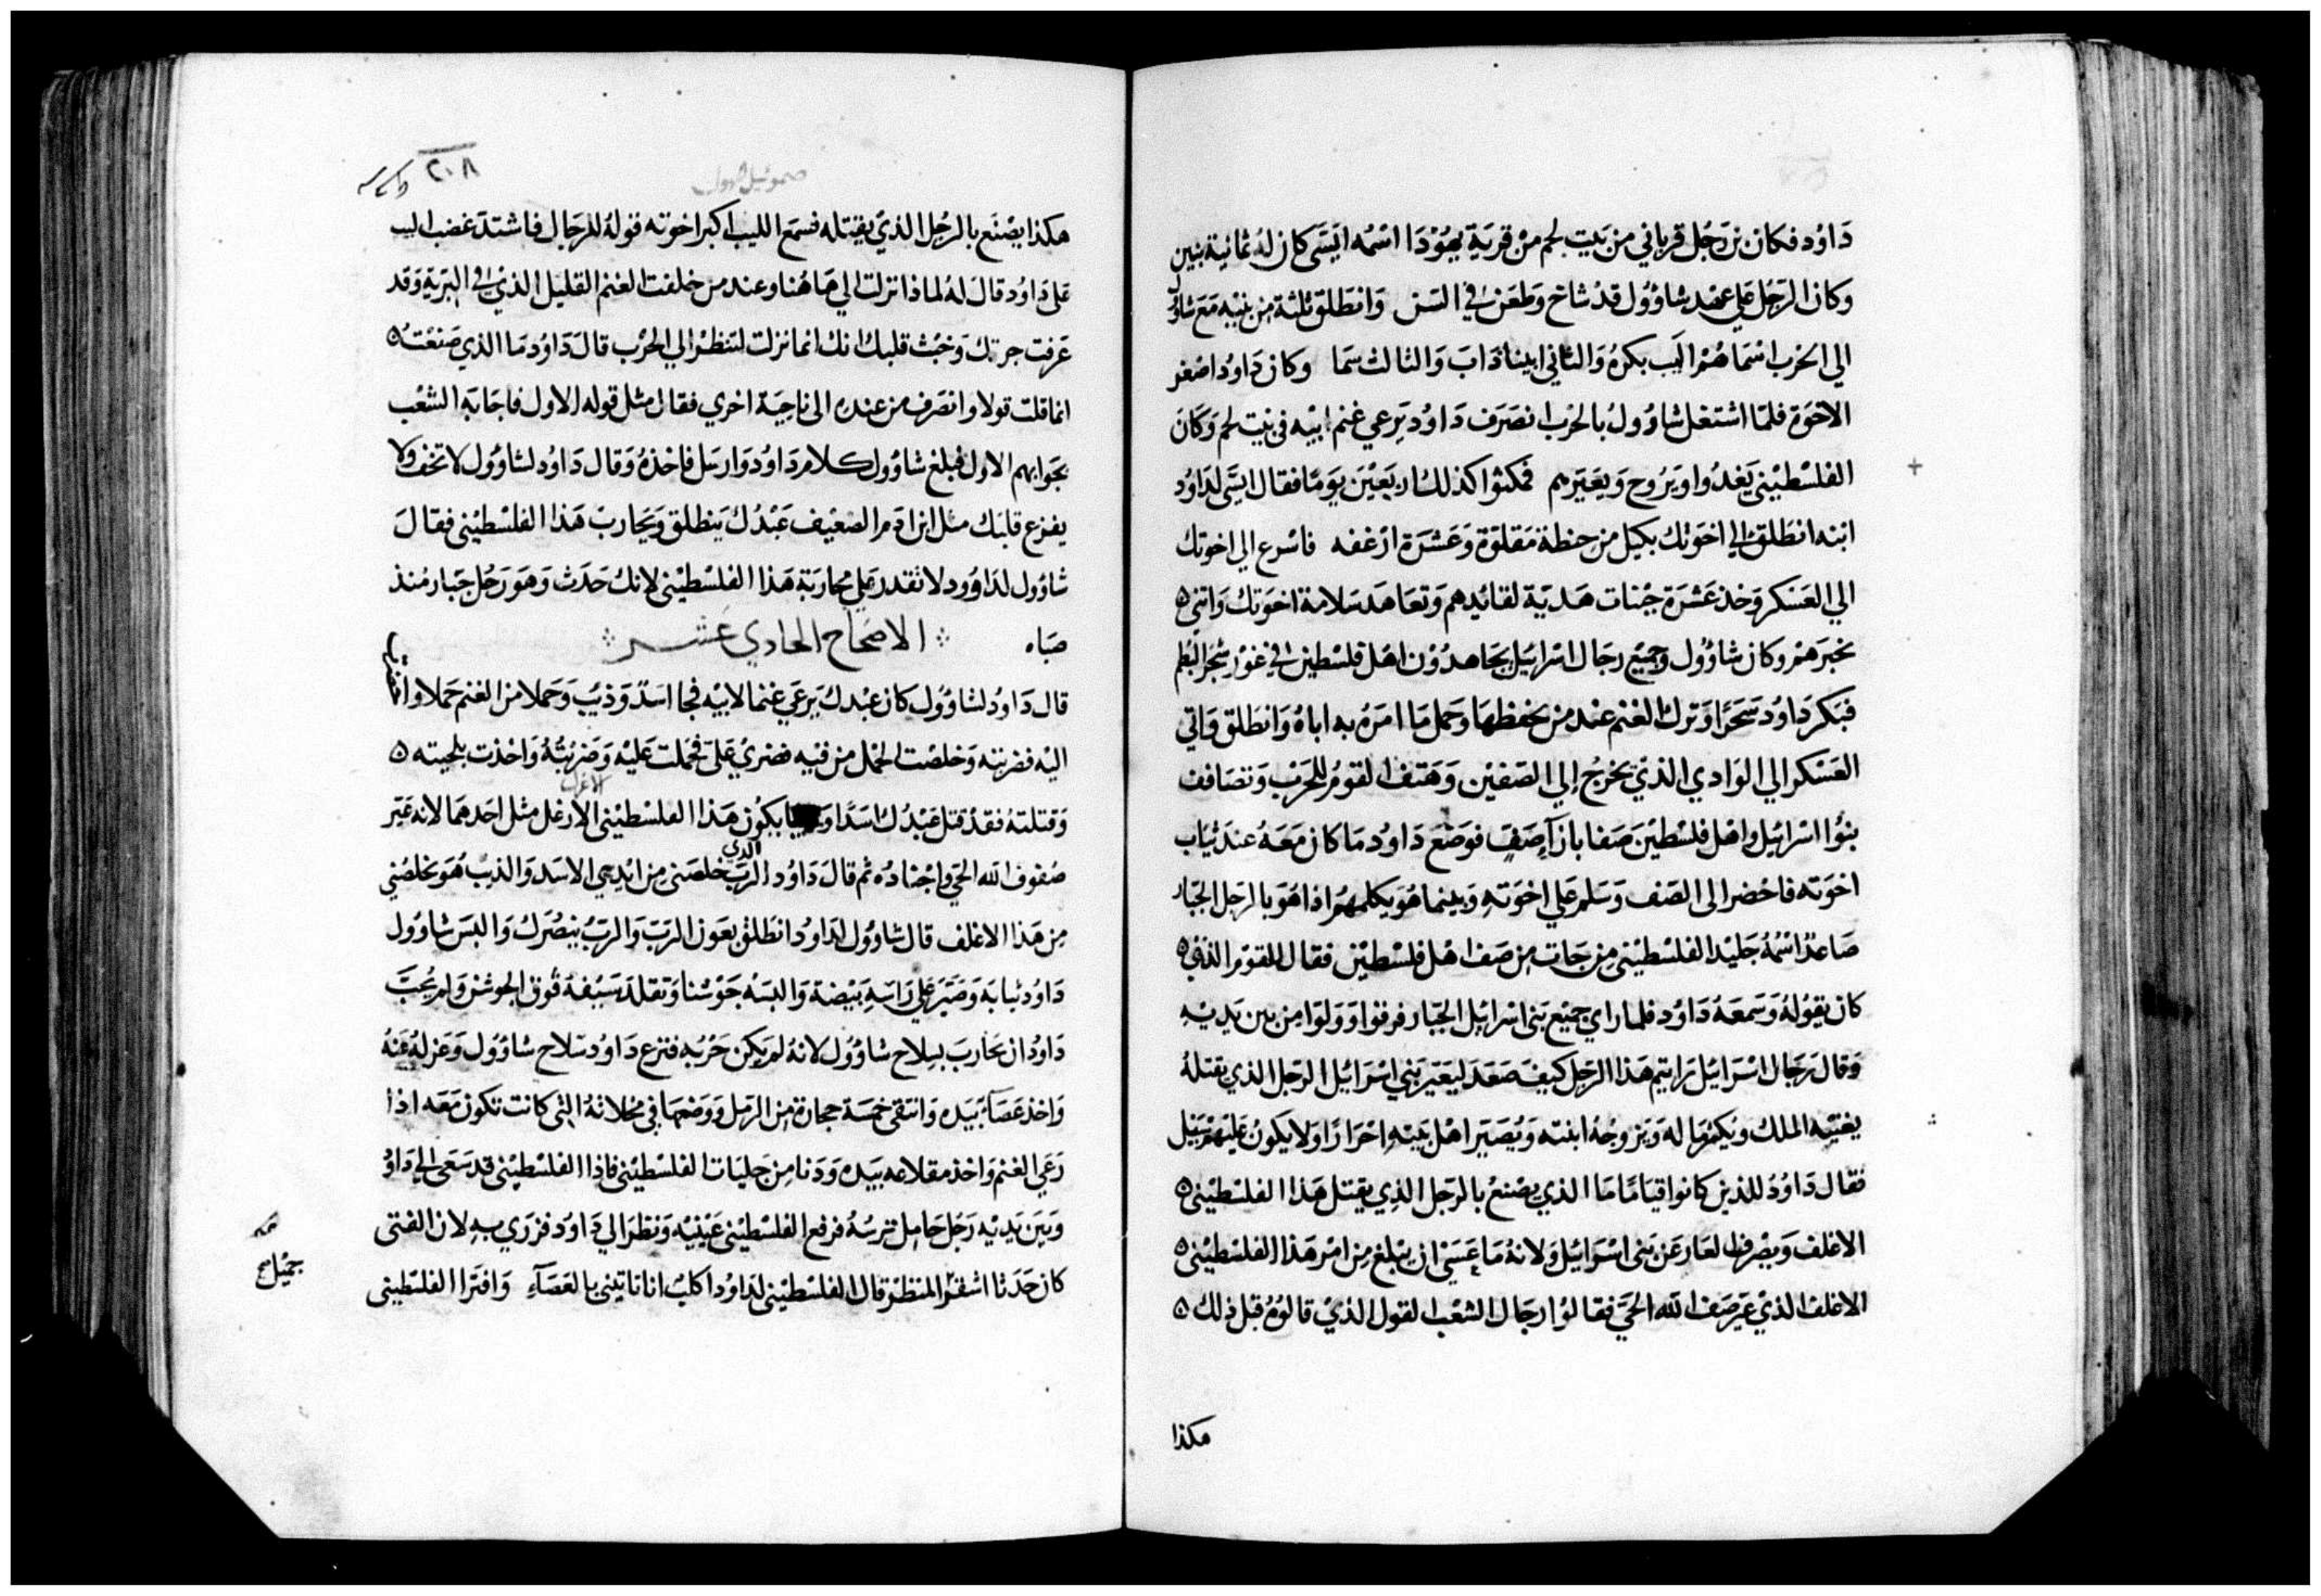 داوُد فكان بن رَجُل قرباني من بَيت لحم من قريَة يهُوْدَا اسْمُه ايسَى كان لهُ ثمانية بنين
وكان الرَجُل على عهد شاوُول قدْ شاخ وطعَن في السّن وَانطَلق ثلثة من بنيْه مَعَ شاوُل
الي الحَرب اسْمَاهُمْ اليَب بكرهُ وَالثاني ابيناذَابَ وَالثالث سَما وكان دَاودُ اصْغر
الاخوَة فلمّا اشتغل شاوُولُ بالحْرب انصَرَف دَاودُ يَرعي غنم ابيْه في بَيت لحم وَكانَ
الفلسْطيْني يَغدُوا وَيَرُوح وَيعَيّرهم فمكثوُا كذلك اربَعيْن يَومًا فقال ايسَّى لدَاوُد
ابْنه انطَلق الي اخوَتك بكيل من حِنطة مَقلوَة وَعَشرَة ارْغفه فاسْرع الي اخوتك
الي العَسْكر وَخذ عَشرَة جُبنات هَديّة لقائدِهم وَتعَاهَد سَلامة اخوَتك وَاتني
بخبَرهمْ وكان شاوُول وَجميْع رجَال اسْرائيل يجَاهدُوْن اهْل فلسْطين في غوْر شجَر البُطم
فبَكر دَاودُ سَحَرًا وَترَك الغنم عند من يحفظهَا وحَمل مَا امَرَهُ به اباهُ وَانطلق وَاتي
العَسْكر الي الوَادي الذيْ يخرجُ إلي الصّفيْن وَهَتف القومُ للحَرْب وَتصَافف
بنوُا اسْرائيل واهْل فلسْطيْن صَفا بازآءِ صَفٍ فوَضَع دَاودُ مَا كان مَعَهُ عند ثيَاب
اخوَته فاحْضر الى الصَف وَسَلم عَلي اخوَتهِ وَبينما هُوَ يكلمهُمْ اذا هَوَ بالرجل الجَبّار
صَاعدٌ اسْمُهُ جَليْد الفلسْطيْني مِن جَات مِن صَف اهْل فلسْطيْن فقال القوْم الذي
كان يقوُلهُ وَسَمعَهُ دَاودُ فلما راي جميْع بَني اسْرائيل الجَبّار فرقوا وَوَلوَا من بين يَديْهِ
وَقال رَجال اسْرَائيل رَايتم هَذا الرَجل كيْف صَعَدَ ليُعَيّر بَني اسْرَائيل الرَجل الذي يقتلهُ
يغنيْه الملك ويُكثر مَاله وَيزَوجُهُ ابنته وَيُصَير اهْل بَيتهِ احْرَارًا وَلا يكونُ عَليْهم سَبيْل
فقال دَاوُدُ للذين كانوا قيَامًا مَا الذي يصْنعُ بالرَجل الذِي يقتل هَذا الفلسْطيْني
الاغلف وَيصْرف العَار عَن بَني اسْرَائيل وَلانهُ مَا عَسَىْ ان يَبْلغ مِن امْر هَذا الفلسْطيْني
الاغلف الذيْ عَيّر صَف الله الحيّ فقالوُا رجَال الشعْب القول الذيْ قالوُهُ قبل ذِلك
هكذا
صموئيل الاول
٢٠٨
هكذا يصْنَع بالرجُل الذيْ يقتله فسمَع الليب اكبر اخوته قولهُ للرجَال فاشتدَ غضب اليب
عَلى دَاوُد قالَ لهُ لماذا نزلت الي هَاهُنا وعند من خلفت الغنم القليل الذي في البريَةِ وَقد
عَرفت جرتك وَخبْث قلبك انك انما نزلت لتنظرْ الي الحْرْب قال دَاوُد مَا الذي صَنعْتُ
انما قلت قولا وانصَرف من عنده الى ناحِيَة اخري فقال مثل قوله الاول فاجَابَهِ الشعْب
بجوَابهم الاول فبلغ شاوُول كلام دَاودُ وَارسَل فاخذهُ وَقال دَاودُ لشاوُول لا تخف وَلا
يفزع قلبَك مثل ابن ادَم الضعيْف عَبْدُك يَنطلق وَيحَاربَ هَذا الفلسْطيْني فقالَ
شاوُول لدَاوُود لا تقدر عَلي محاربَة هَذا الفلسْطيْني لانك حَدَث وَهوَ رَجُل جَبّار مُنذ
صَباه الاصْحاح الحادي عشر
قال دَاودُ لشاوُول كان عبْدك يَرعَي غنما لابيْه فجا اسَدٌ وَذيْب وَحَملا من الغنم حَملا وانا
اليْه فضربته وَخلصْت الحْمل من فيْه فضريْ عَليّ فحَملت عَليْه وَضرَبْتُهُ وَاخذت بلحيته
الاغلف
وَقتلتهُ فقدْ قتل عَبْدُك اسَدًا يكوُن هَذا الفلسْطيْني الارغل مثل احَدهمَا لانه عَيّر
الذي
صُفوف الله الحيّ وَاجْنادُه ثم قال دَاودُ الرَبّ خلصَني من ايْدِي الاسَد وَالذيْب هُوَ يخلصُني
مِن هَذا الاغلف قال شاوُول لدَاودُ انطَلق بعَون الرَبّ وَالرَبّ ينصُرَك وَالبَسَ شاوُول
دَاوُد ثيابَه وَصَيّر عَلي رَاسِهِ بَيْضة وَالبَسَهُ جَوْشنا وَتقلدَ سَيْفهُ فوق الجوشنْ وَلم يُحِبَّ
دَاودُ ان يحَاربَ بسِلاح شاوُول لانهُ لم يَكن جَرّبَهِ فنزع دَاودُ سلاح شاوُول وَعزلهُ عَنهُ
وَاخذ عَصَآءً بيَده وَانتقي خمسَة حجارَة مِن الرَمل وَوَضعهَا في مخلاتهُ التي كانت تكون مَعَه اذا
رَعَي الغنم وَاخذ مقلاعه بيَده وَدَنا مِن جَليَات الفلسْطيْني فاذا الفلسْطيْني قد سَعَى الي دَاوُد
وَبَينَ يَديْه رَجُل حَامِل ترسُهُ فرفع الفلسْطيْني عَيْنيْه وَنظرَ الي دَاودُ فزرَي بهِ لان الفتى
كان حَدَثا اشقرُ المنظرْ قال الفلسْطيْني لدَاودُ اكلبٌ انا تاتيني بالعَصَآءِ وَافترَا الفلسْطيني
جميْل